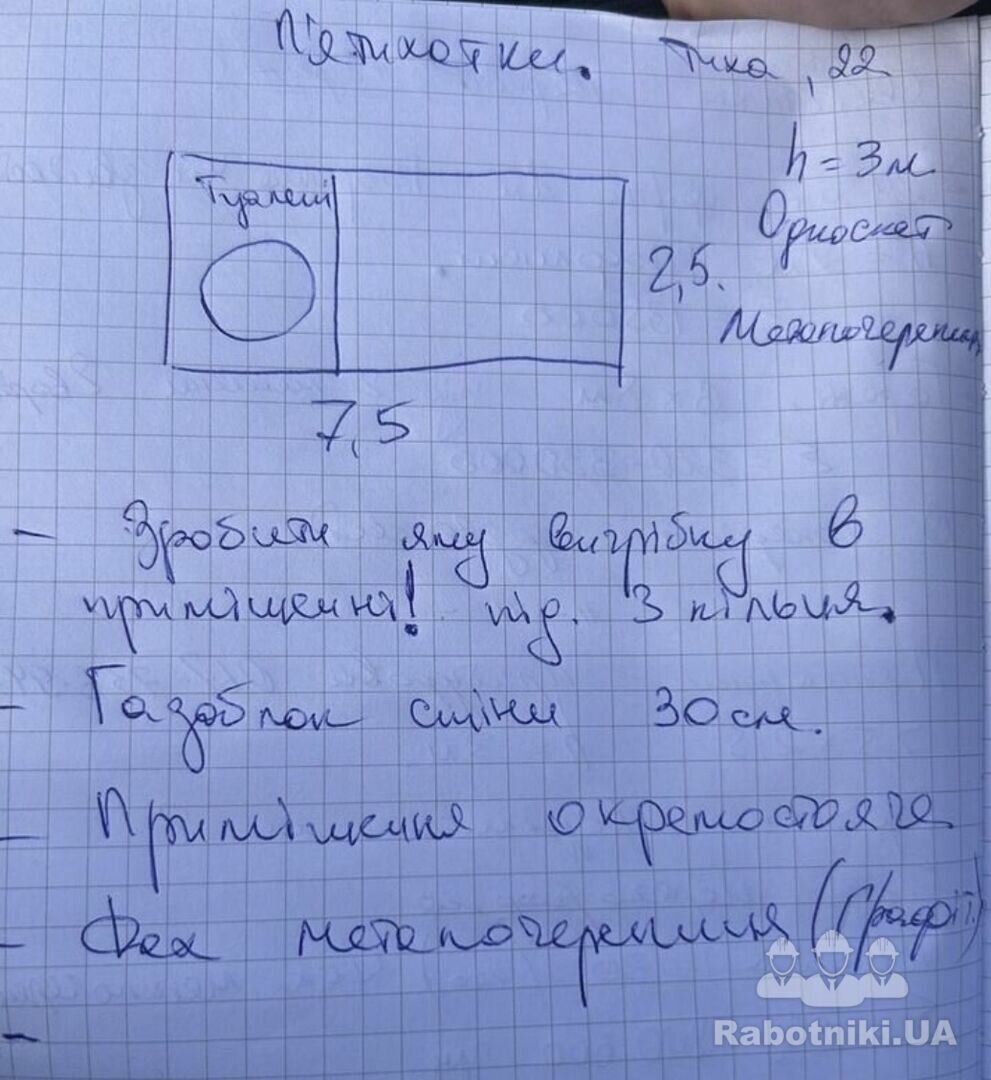 П'ятихатки. Тиха, 22
h = 3м
Туалет
Односкат
2,5.
Металочерепиця
7,5
- Зробити яму вигрібну в
приміщенні! під. 3 кільця.
- Газоблок стіни 30см.
- Приміщення окремостояче
- Дах металочерепиця (Графіт)
-
Rabotniki.UA